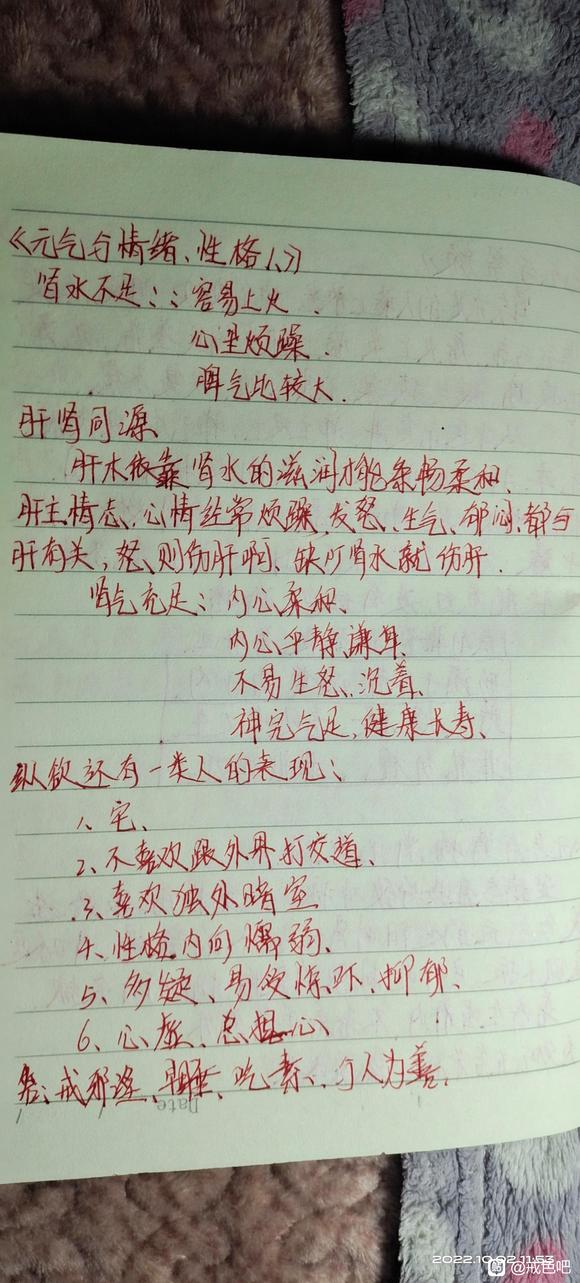 《元气与情绪、性格、》
肾水不足：：容易上火.
心里烦躁.
脾气比较大.
肝肾同源、
肝木依靠肾水的滋润才能条畅柔和、
肝主情志、心情经常烦躁、发怒、生气、郁闷、都与
肝有关，怒、则伤肝啊、缺少肾水就伤肝.
肾气充足：内心柔和、
内心平静、谦卑、
不易生怒、沉着、
神完气足，健康长寿、
纵欲还有一类人的表现：
1、宅、
2、不喜欢跟外界打交道、
3、喜欢独处暗室
4、性格内向懦弱、
5、多疑、易受惊吓、抑郁、
6、心虚、总担心
戒邪淫、早睡、吃素、与人为善、
Date
2022.10.02 11:53
@戒色吧